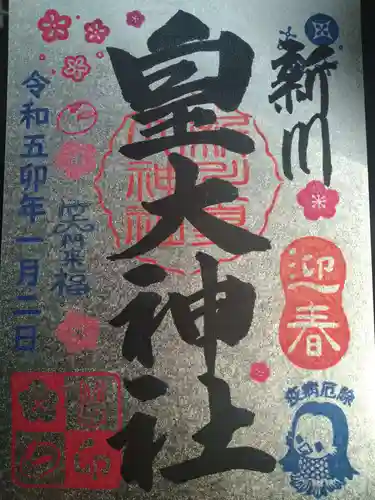 新川
皇大神社
令和五卯年一月二日
笑門来福
迎春
疫病厄除